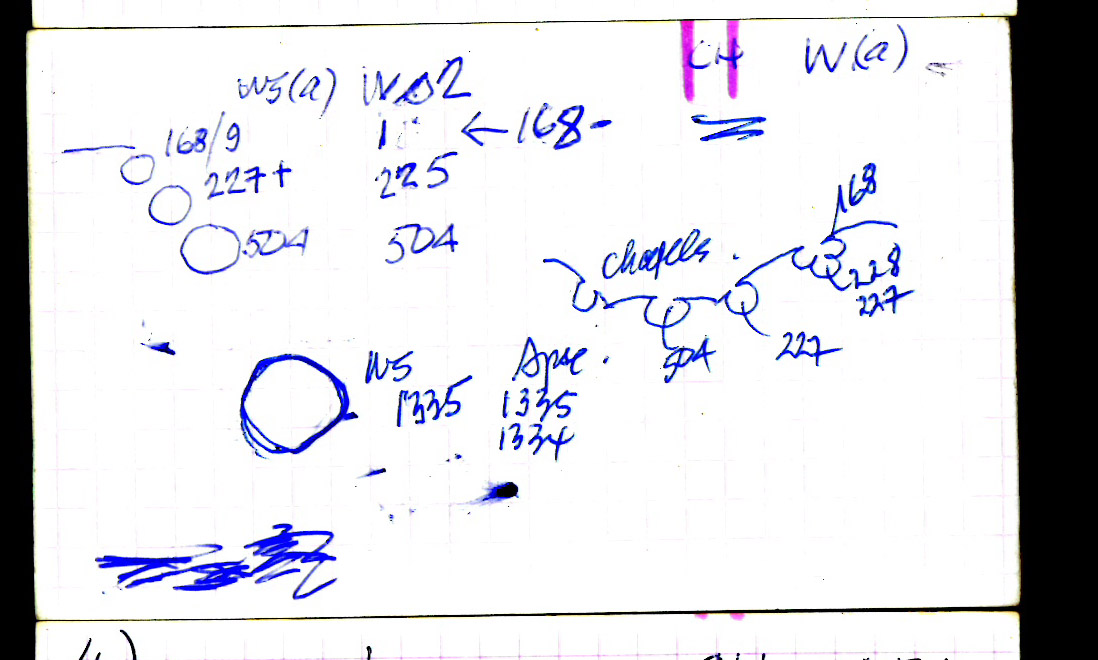 CH W(a)
W5(a)
168/9 1 ← 168-
227+ 225
504 504
chapels.
168
228
227
504 227
W5 Apse.
1335 1335
1334